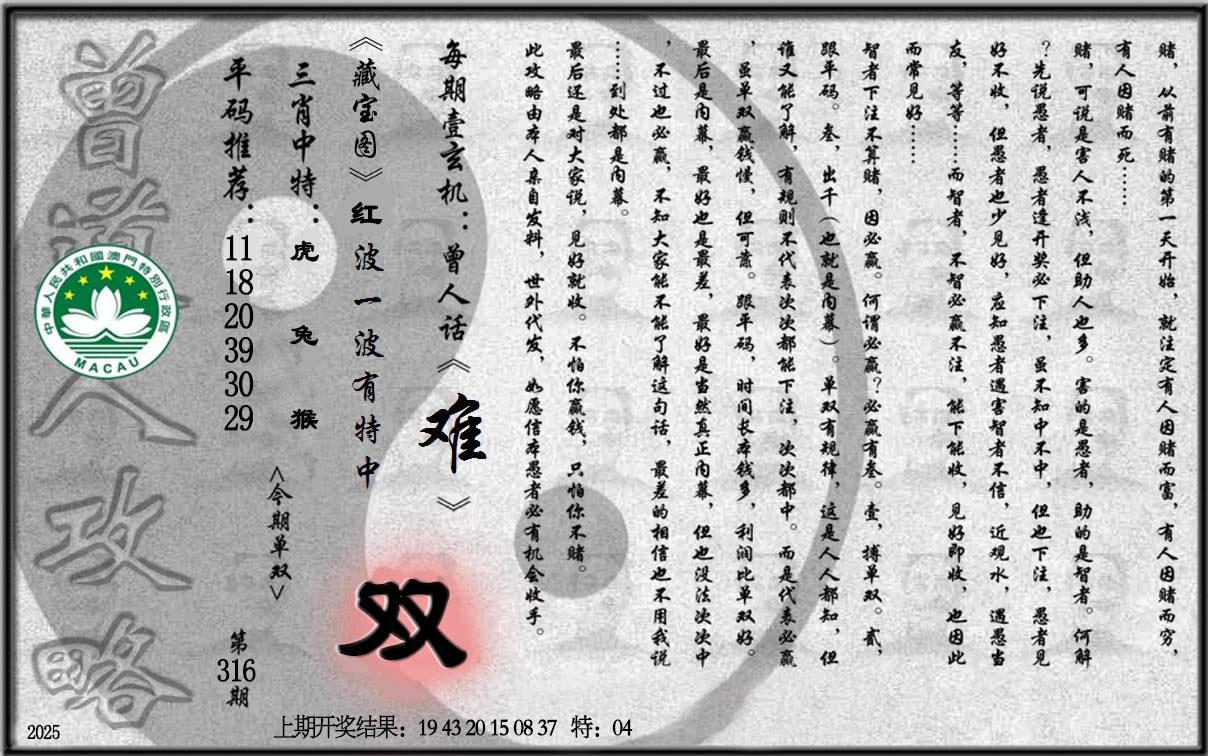 赌，从前有赌的第一天开始，就注定有人因赌而富，有人因赌而穷，
有人因赌而死……
赌，可说是害人不浅，但助人也多。害的是愚者，助的是智者。何解
？先说愚者，愚者逢开奖必下注，虽不知中不中，但也下注，愚者见
好不收，但愚者也少见好，应知愚者遇害智者不信，近观水，遇愚当
友，等等……而智者，不智必赢不注，能下能收，见好即收，也因此
而常见好……
智者下注不算赌，因必赢。何谓必赢？必赢有叁。壹，搏单双。贰，
跟平码。叁，出千（也就是内幕）。单双有规律，这是人人都知，但
谁又能了解，有规则不代表次次都能下注，次次都中。而是代表必赢
，虽单双赢钱慢，但可靠。跟平码，时间长本钱多，利润比单双好。
最后是内幕，最好也是最差，最好是当然真正内幕，但也没法次次中
，不过也必赢，不知大家能不能了解这句话，最差的相信也不用我说
……到处都是内幕。
最后还是对大家说，见好就收。不怕你赢钱，只怕你不赌。
此攻略由本人亲自发料，世外代发，如愿信本愚者必有机会收手。
每期壹玄机：曾人话《难》
《藏宝图》红波一波有特中
双
三肖中特：虎 兔 猴
<今期单双>
平码推荐：
11
18
20
39
30
29
第
316
期
曾道人攻略
中華人民共和國澳門特別行政區
MACAU
2025
上期开奖结果：19 43 20 15 08 37 特：04